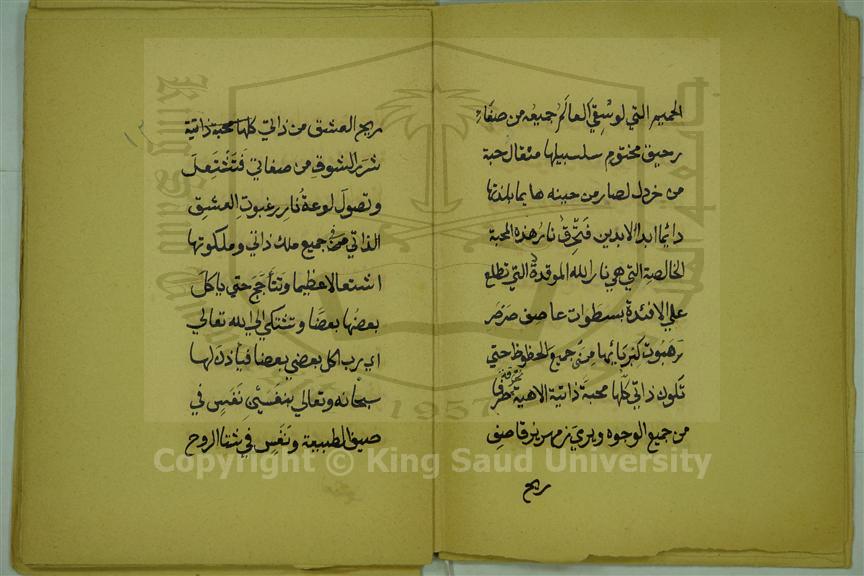 الحميه التي لو سقي العالم جميعه من صفاء
رحيق مختوم سلسبيلها مثقال حبة
من خردل لصار من حينه هايما بلذتها
دائما ابد الابدين فتحرق نار هذه المحبة
الخالصة التي هي نار الله الموقدة التي تطلع
علي الافئدة بسطوات عاصف صرصر
رهبوت كبريائها مني جميع الحظوظ حتي
تكون ذاتي كلها محبة ذاتية الاهية
من جميع الوجوه ويري زمهرير قاصف
ريح
ريح العشق من ذاتي كلها محبة ذاتية
شرر الشوق من صفاتي فتشتعل
وتصول لوعة نار رغبوت العشق
الذاتي في جميع ملك ذاتي وملكوتها
اشتعالا عظيما وتتأجج حتي ياكل
بعضها بعضا وتشتكي الي الله تعالي
اي رب اكل بعضي بعضا فياذن لها
سبحانه وتعالي بنفسين نفس في
صيف الطبيعة ونفس في شتا الروح
١٢
King Saud University
1957
Copyright © King Saud University